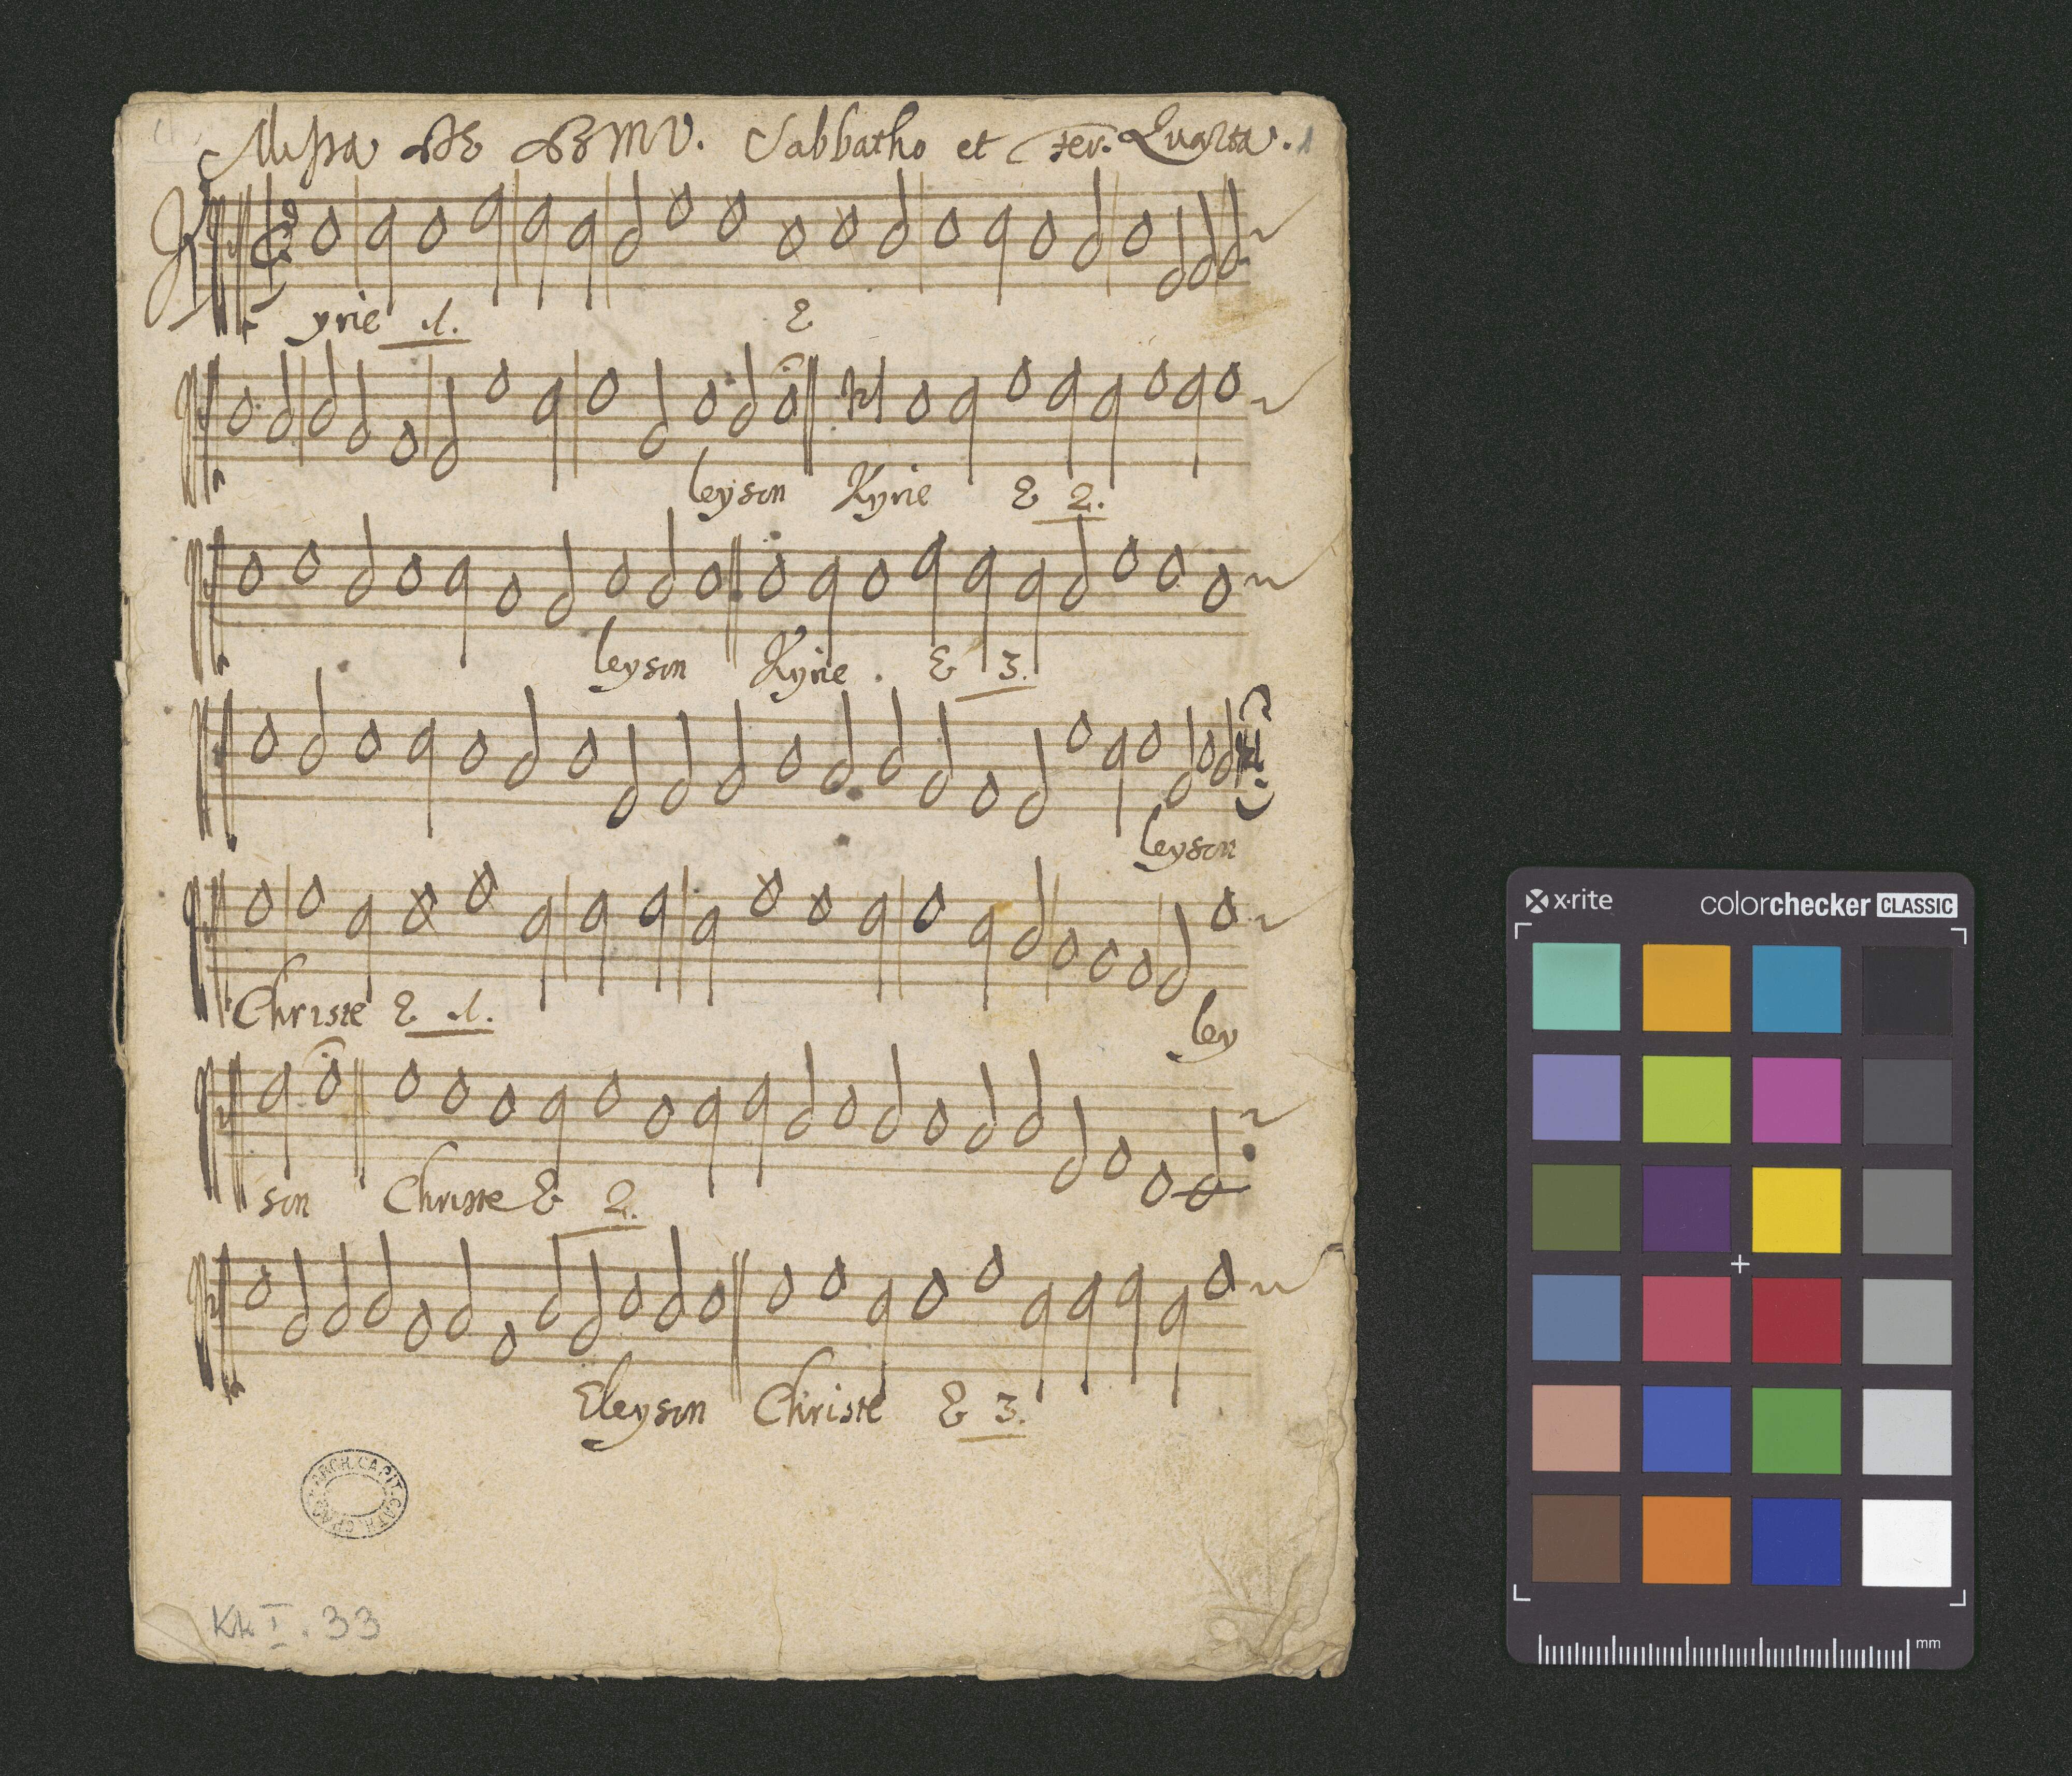 Missa de B M V. Sabbatho et Fer. Quarta. 1
Kyrie 1. E
leyson Kyrie E 2.
leyson Kyrie. E 3.
leyson
Christe E 1. ley
son Christe E 2.
Eleyson Christe E 3.
ARCH. CAPIT. CATH. CRAC.
Kk I. 33
x-rite colorchecker CLASSIC
mm